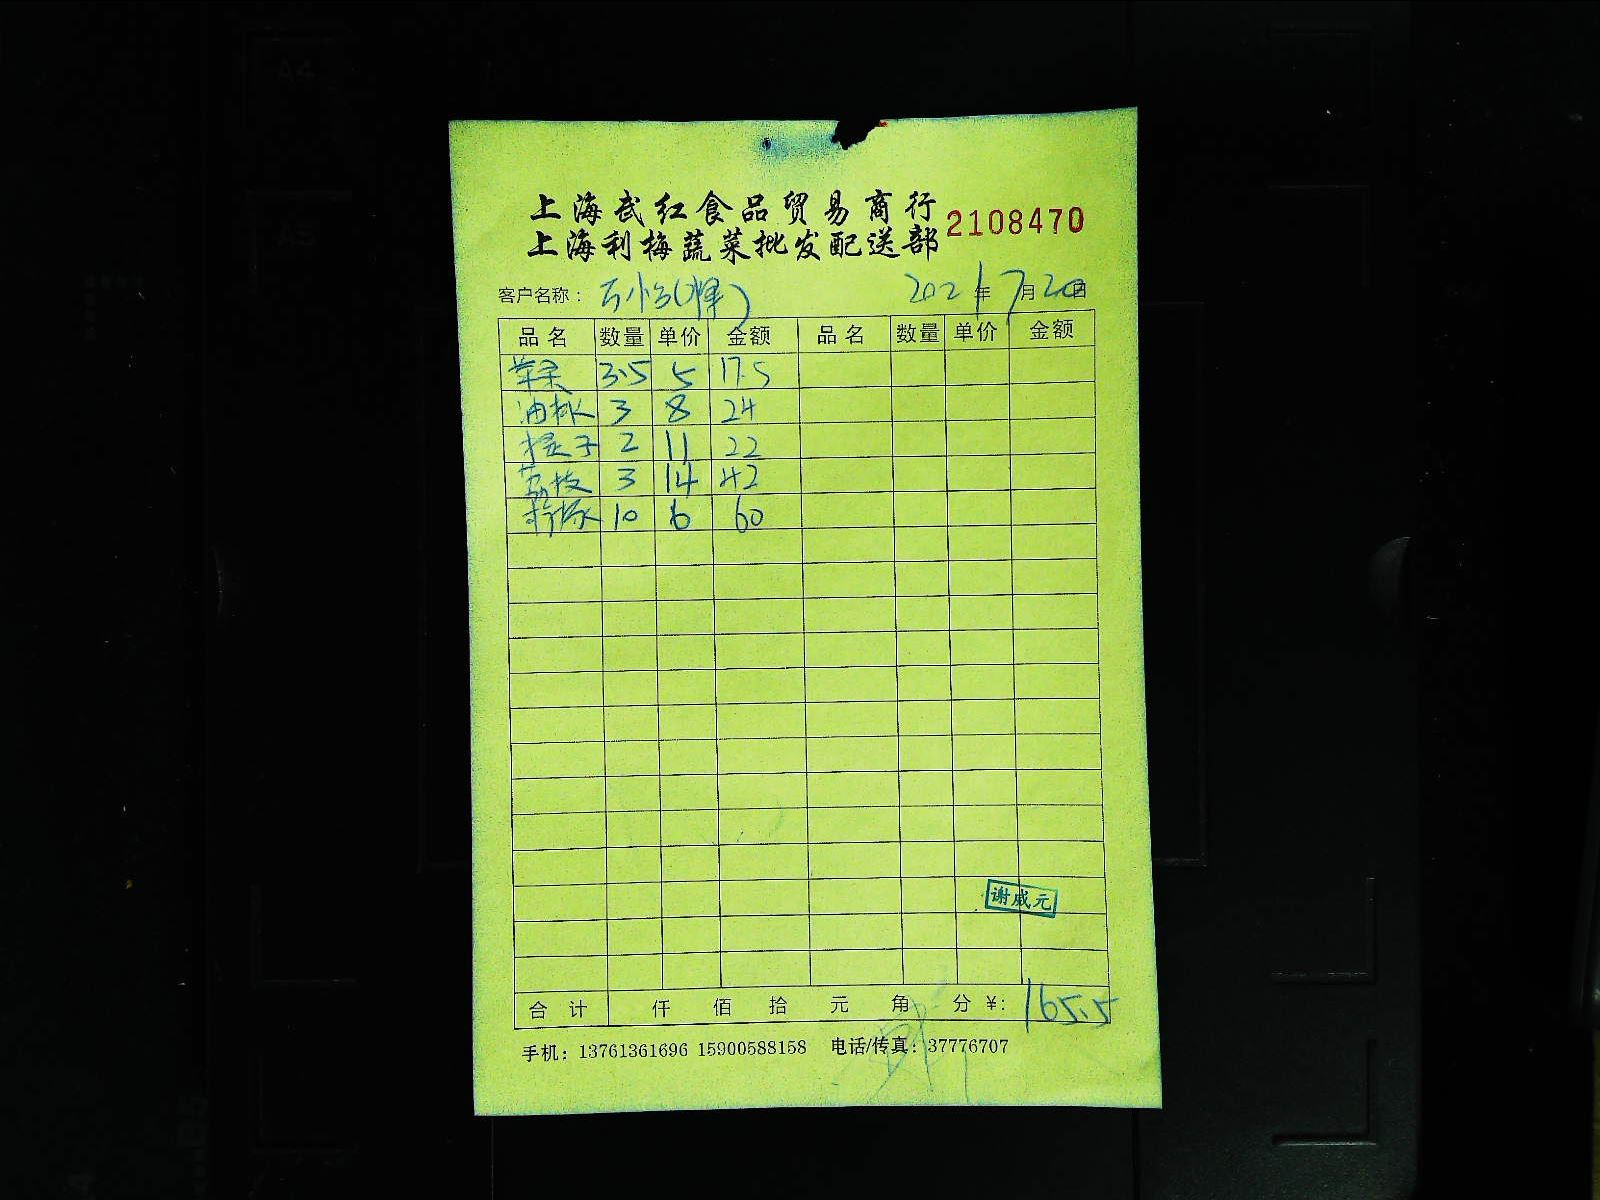 上海武红食品贸易商行
上海利梅蔬菜批发配送部
2108470
客户名称： 2021年7月20日
品名 数量 单价 金额 品名 数量 单价 金额
苹果 3.5 5 17.5
油桃 3 8 24
提子 2 11 22
荔枝 3 14 42
10 6 60
谢威元
合计 仟 佰 拾 元 角 分 ¥: 165.5
手机：13761361696 15900588158 电话/传真：37776707